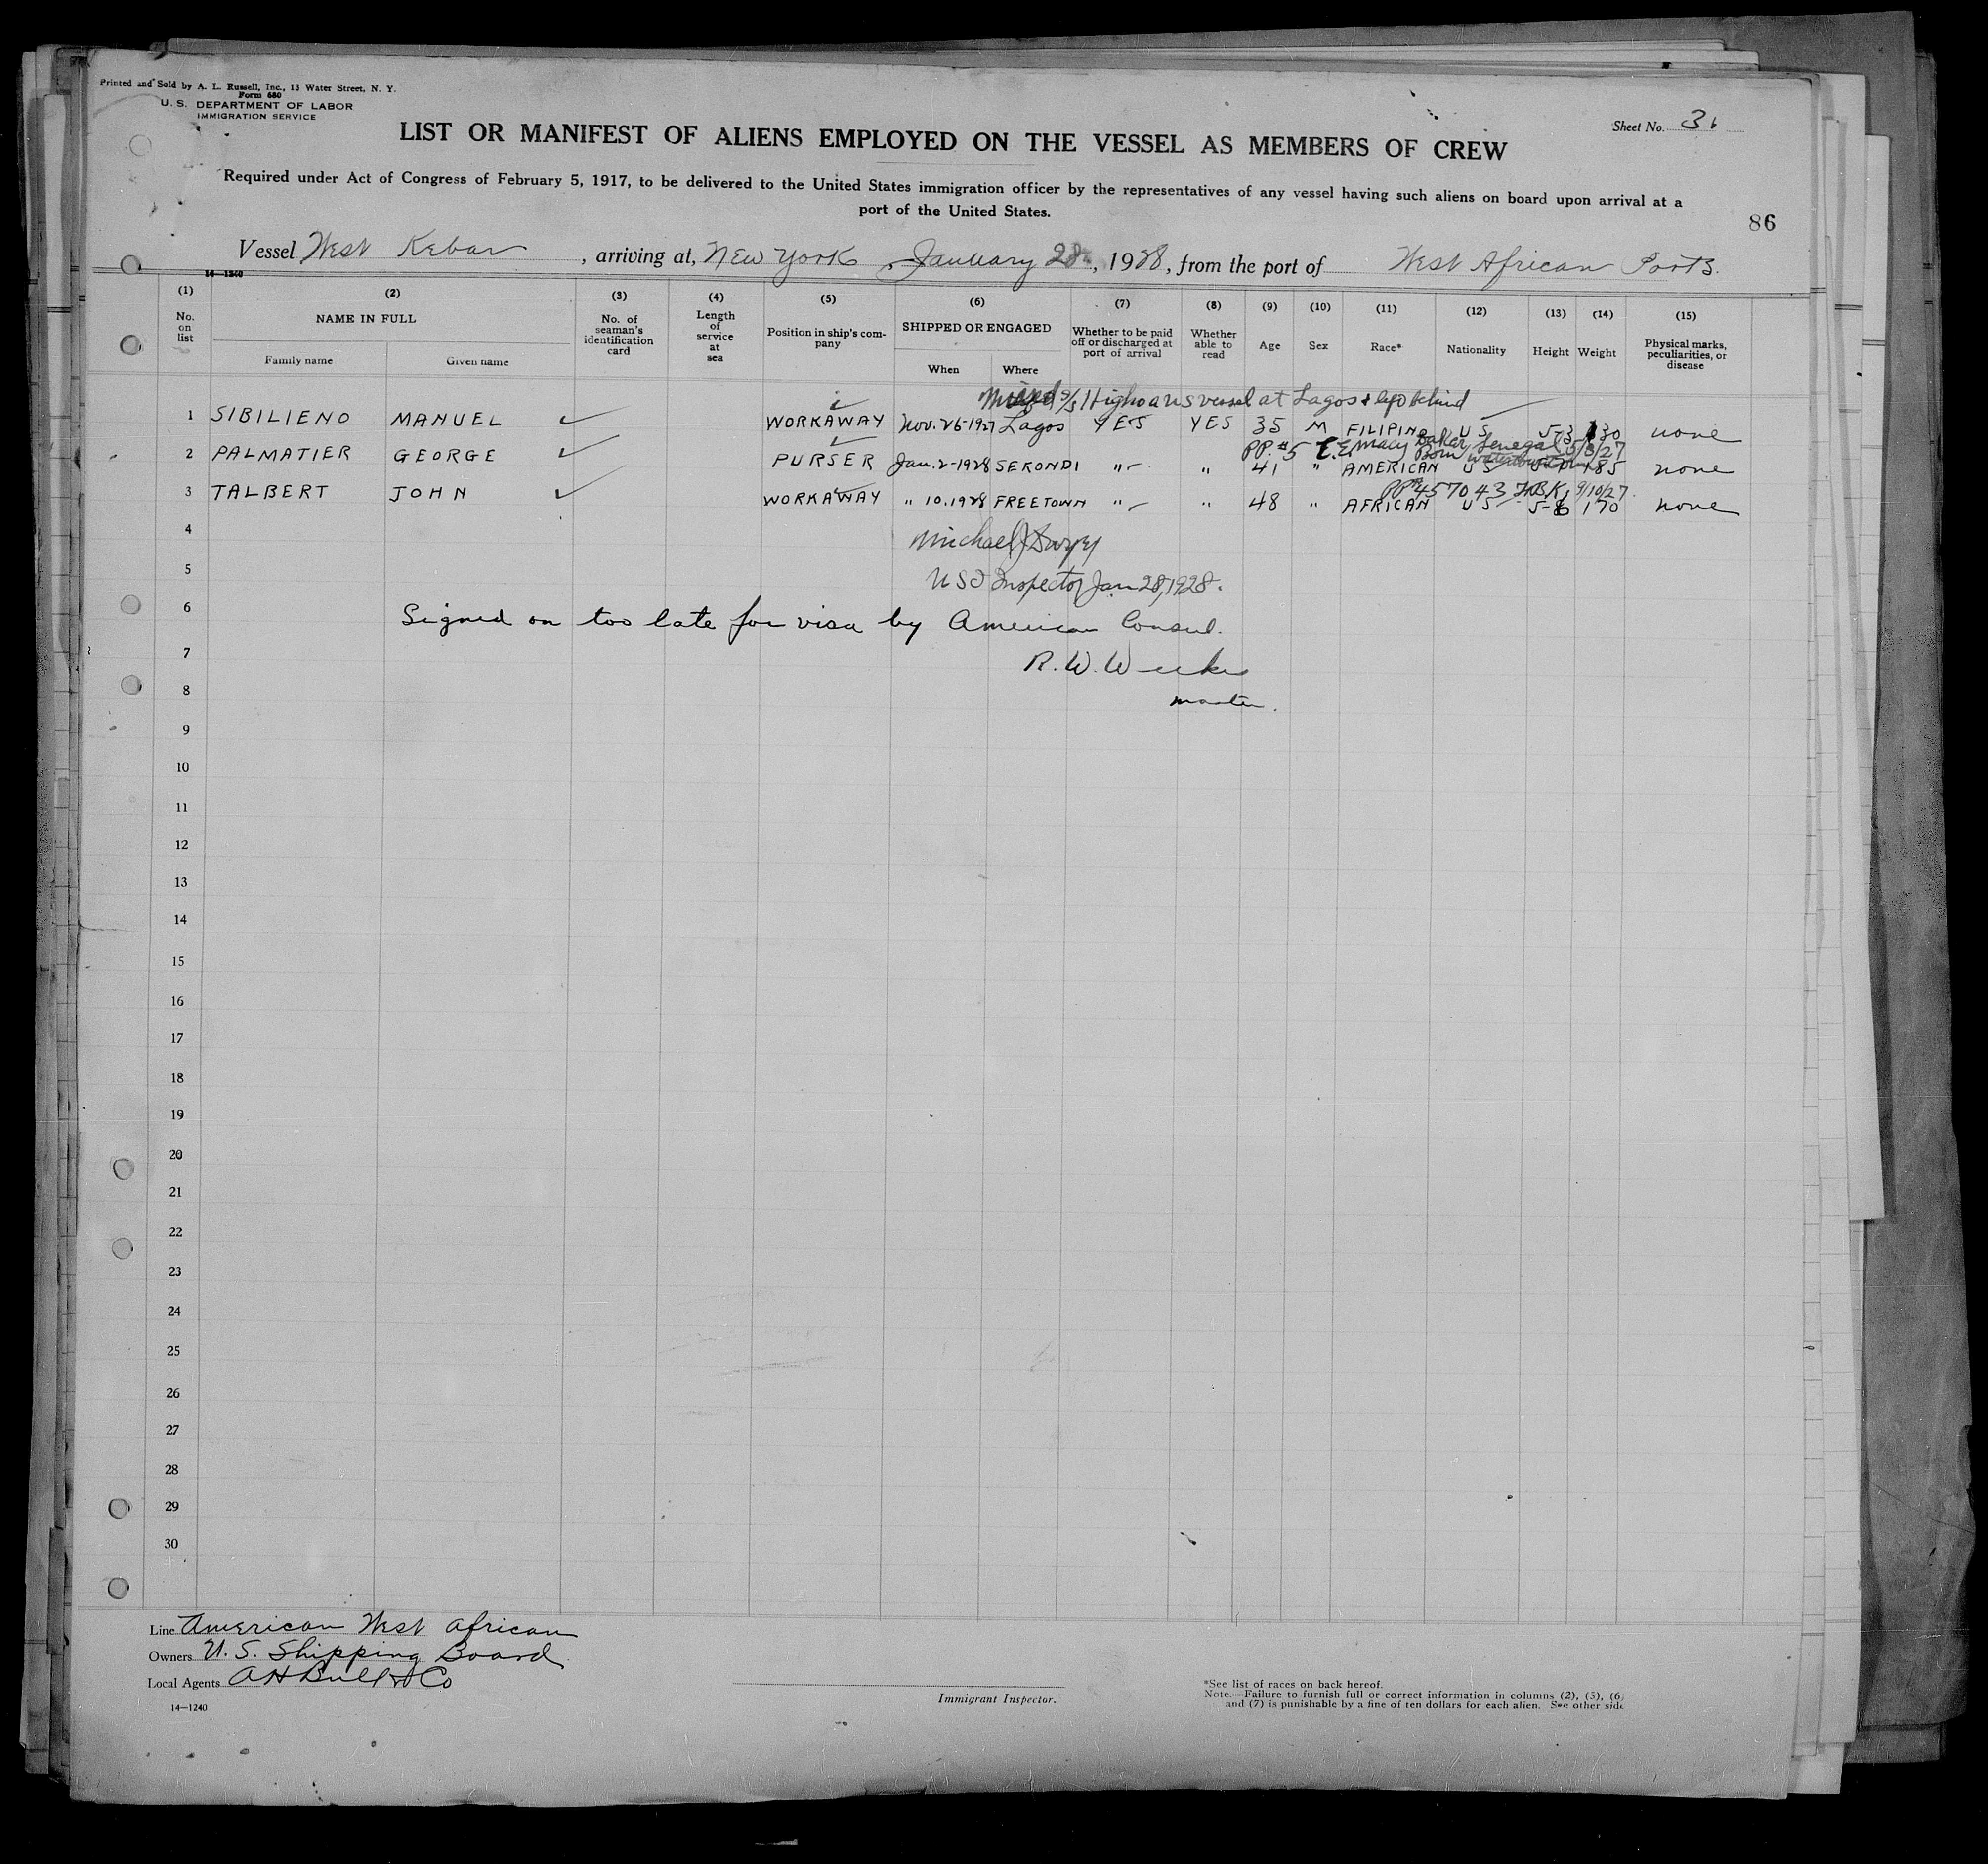 Printed and Sold by A. L. Russell, Inc., 13 Water Street, N. Y.
Form 680
U. S. DEPARTMENT OF LABOR
IMMIGRATION SERVICE
Sheet No. 3
LIST OR MANIFEST OF ALIENS EMPLOYED ON THE VESSEL AS MEMBERS OF CREW
Required under Act of Congress of February 5, 1917, to be delivered to the United States immigration officer by the representatives of any vessel having such aliens on board upon arrival at a
port of the United States.
86
Vessel West Kebar, arriving at, New York, January 28, 1928, from the port of West African Ports.
14—1240
(1) (2) (3) (4) (5) (6) (7) (8) (9) (10) (11) (12) (13) (14) (15)
No. on list NAME IN FULL Family name Given name No. of seaman's identification card Length of service at sea Position in ship's company SHIPPED OR ENGAGED When Where Whether to be paid off or discharged at port of arrival Whether able to read Age Sex Race* Nationality Height Weight Physical marks, peculiarities, or disease
vessel at Lagos & left behind
1 SIBILIENO MANUEL WORKAWAY Nov. 26-1927 Lagos YES YES 35 M FILIPINO US 5-3 130 none
PP. #5 Senegal
2 PALMATIER GEORGE PURSER Jan. 2-1928 SEKONDI " " 41 " AMERICAN US 185 none
PP# 457043 9/10/27
3 TALBERT JOHN WORKAWAY " 10.1928 FREETOWN " " 48 " AFRICAN US 5-8 170 none
4 Michael J
5 Inspector Jan 28, 1928.
6 Signed on too late for visa by American Consul.
7 R. W. Weeks
8 master.
9
10
11
12
13
14
15
16
17
18
19
20
21
22
23
24
25
26
27
28
29
30
Line American West African
Owners U. S. Shipping Board
Local Agents A H Bull & Co
14—1240
Immigrant Inspector.
*See list of races on back hereof.
Note.—Failure to furnish full or correct information in columns (2), (5), (6)
and (7) is punishable by a fine of ten dollars for each alien. See other side